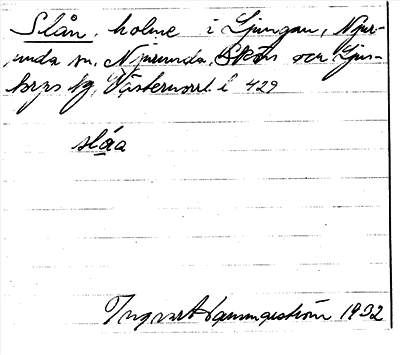 Slån, holme i Ljungan, Njur-
unda sn, Njurunda, Sköns och Ljus-
torps tg, Västernorrl. l. 429
slåa
Ingvart Hammarström 1932